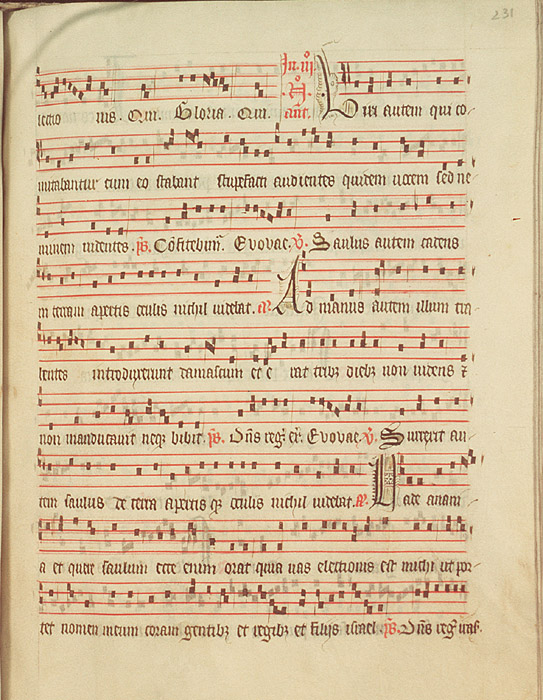 231
lectio nis. Qui. Gloria. Qui. In. iii. N. ant. Viri autem qui co
mitabantur cum eo stabant stupefacti audientes quidem vocem sed ne
minem videntes. ps. Cōfitebim̄. Evovae. v. Saulus autem cadens
in terram apertis oculis nichil videbat. a. Ad manus autem illum tra
hentes introduxerunt damascum et e rat tribꝫ diebꝫ non videns ⁊
non manducavit neqꝫ bibit. ps. Dn̄s reḡ. et. Evovae. v. Surrexit au
tem saulus de terra apertis qꝫ oculis nichil videbat. a. Vade anani
a et quere saulum ecce enim orat quia vas electionis est michi ut por
tet nomen meum coram gentibꝫ et regibꝫ et filiis israel. ps. Dn̄s reḡ